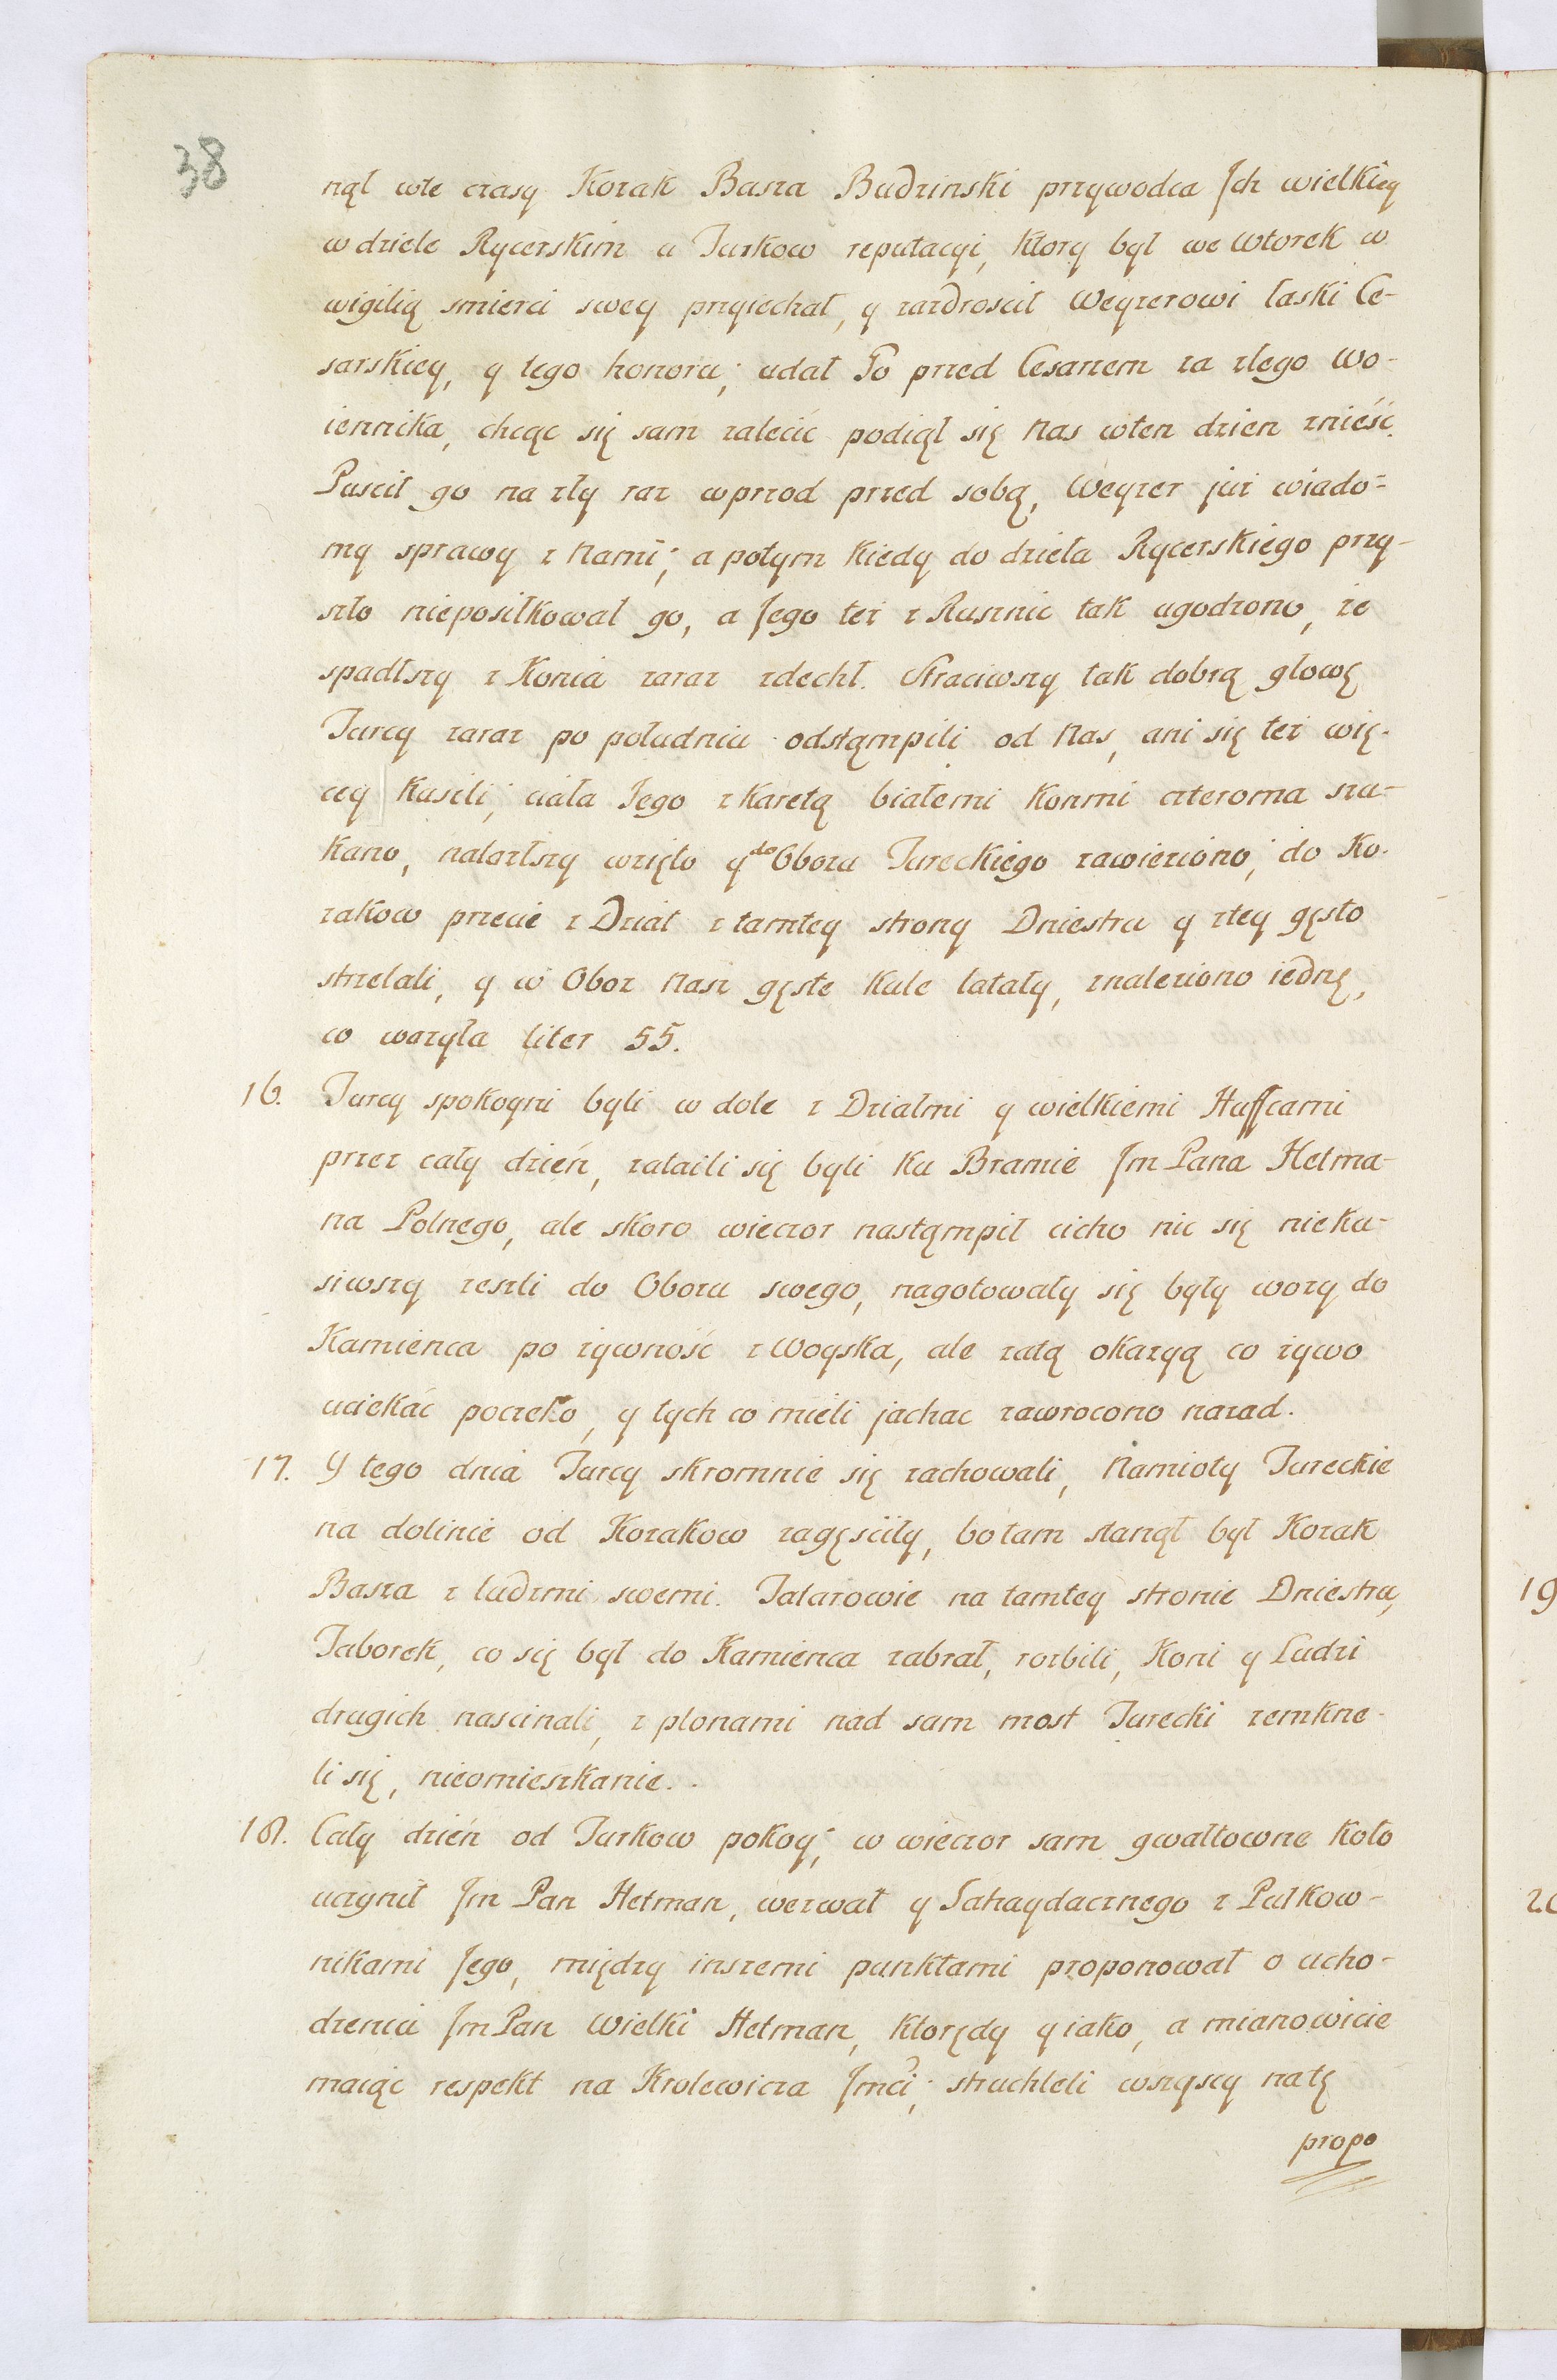 38
nął wte czasy Kozak Basza Budzinski przywodca Jch wielkiey
w dziele Rycerskim u Turkow reputacyi, ktory był we Wtorek w
wigilią smierci swey przyiechał, y zazdroscił Weyzerowi łaski Ce-
sarskiey, y tego honoru; udał Go przed Cesarzem za złego Wo-
iennika, chcąc się sam zalecić podiął się Nas wten dzien znieść.
Puscił go na zły raz wprzod przed sobą, Weyzer już wiado-
my sprawy z Nami; a potym kiedy do dzieła Rycerskiego przy-
szło nieposiłkował go, a Jego też z Rusznic tak ugodzono, że
spadłszy z Konia zaraz zdechł. Straciwszy tak dobrą głowę
Turcy zaraz po południu odstąmpili od Nas, ani się też wię-
cey kusili; ciała Jego z karetą białemi konmi czteroma szu-
kano, nalazłszy wzięto y do Obozu Tureckiego zawieziono; do Ko-
zakow przecie z Dział z tamtey strony Dniestru y ztey gęsto
strzelali, y w Oboz Nasz gęste kule latały, znaleziono iednę,
co ważyła liter 55.
16. Turcy spokoyni byli w dole z Działmi y wielkiemi Huffcami
przez cały dzień, zataili się byli ku Bramie Jm Pana Hetma-
na Polnego, ale skoro wieczor nastąmpił cicho nic się nieku-
siwszy zeszli do Obozu swego, nagotowały się były wozy do
Kamienca po żywność z Woyska, ale zatą okazyą co żywo
uciekać poczeło, y tych co mieli jachac zawrocono nazad.
17. Y tego dnia Turcy skromnie się zachowali, Namioty Tureckie
na dolinie od Kozakow zagęsciły, bo tam stanął był Kozak
Basza z ludzmi swemi. Tatarowie na tamtey stronie Dniestru,
Taborek, co się był do Kamienca zabrał, rozbili, Koni y Ludzi
drugich nascinali, z plonami nad sam most Turecki zemkne-
li się, nieomieszkanie.
18. Cały dzień od Turkow pokoy; w wieczor sam gwałtowne koło
uczynił Jm Pan Hetman, wezwał y Sahaydacznego z Pułkow-
nikami Jego, między inszemi punktami proponował o ucho-
dzeniu Jm Pan Wielki Hetman, ktorędy y iako, a mianowicie
maiąc respekt na Krolewicza Jmći; struchleli wszyscy natę
propo
19
20